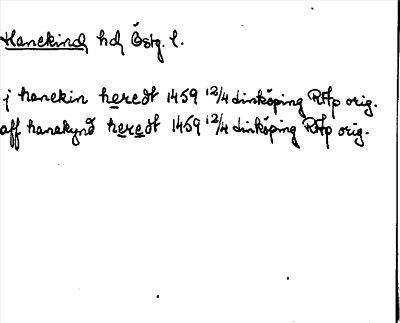 Hanekind hd Östg. l.
j hanekin heredt 1459 12/4 Linköping RAp orig.
aff hanekynd heredt 1459 12/4 Linköping RAp orig.